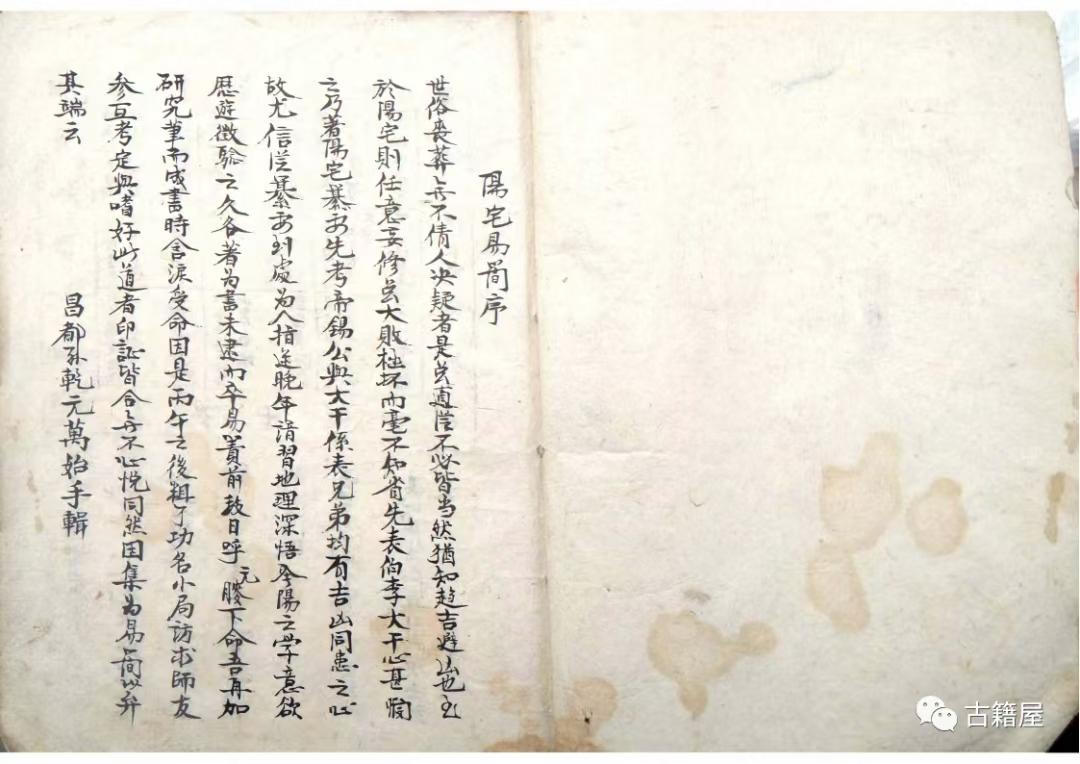 陽宅易簡序
世俗喪葬無不倩人决疑者是岂真茫不必皆当然猶知趋吉避凶也至
於陽宅則任意妄修岂大敗極坏而毫不知省先表伯李大干心甚悯
之乃著陽宅纂要先考帝錫公與大干係表兄弟均有吉凶同患之心
故尤信從纂要到處为人指迷晚年請習地理深悟陰陽之学意欲
歷遊徵驗之久各著为書未逮而卒易簀前数日呼元膝下命吾再加
研究筆而成書時含淚受命因是丙午之後粗了功名小局訪求師友
参互考定與嗜好此道者印証皆合無不心悅同然因集为易簡以弁
其端云
昌都孫乾元萬始手輯
古籍屋